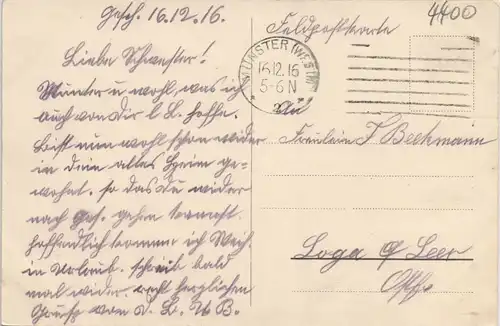 Gesch. 16.12.16.
Liebe Schwester!
Munter u. wohl, was ich
auch von dir l. L. hoffe.
Bist nun wohl schon wieder
in dein altes Heim ge-
wohnt. so das du wider
nach Ges. gehen
hoffendlich komme ich Weih.
in Urlaub. schreib bald
mal wider. recht herzlichen
Gruß von d. L. u B.
4400
Feldpostkarte
MÜNSTER (WESTF)
16.12.16
5-6 N
An
Fräulein J Beekmann
Loga b/ Leer
Ostfr.